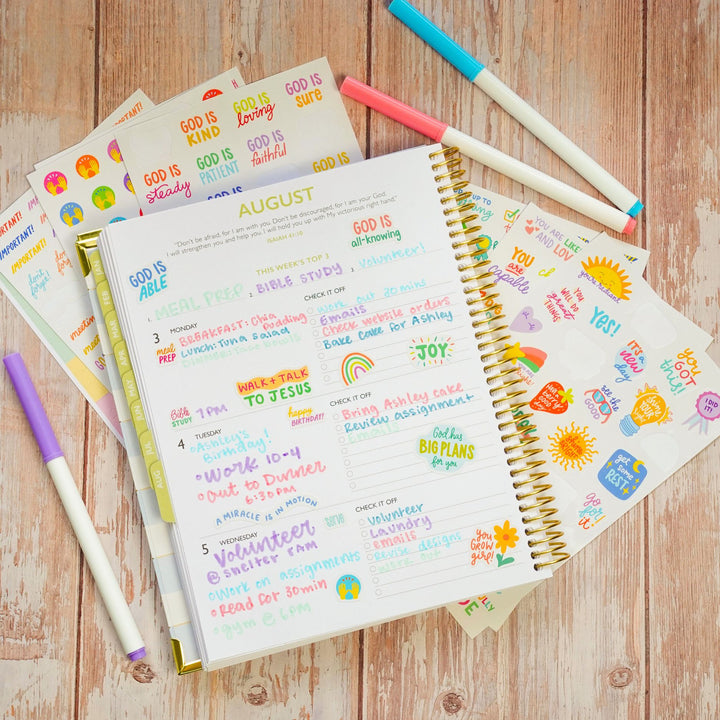 AUGUST
"Don't be afraid, for I am with you. Don't be discouraged, for I am your God.
I will strengthen you and help you. I will hold you up with My victorious right hand."
ISAIAH 41:10
GOD IS
ABLE
GOD IS
all-knowing
THIS WEEK'S TOP 3
1. MEAL PREP
2. BIBLE STUDY
3. Volunteer!
3 MONDAY
meal
PREP
BREAKFAST: Chia Pudding
Lunch: Tuna Salad
WALK + TALK
TO JESUS
Bible
STUDY
7PM
happy
BIRTHDAY!
CHECK IT OFF
work out 30mins
Emails
Check website orders
Bake cake for Ashley
JOY
4 TUESDAY
Ashley's
Birthday!
Work 10-4
Out to Dinner
6:30PM
A MIRACLE IS IN MOTION
CHECK IT OFF
Bring Ashley cake
Review assignment
Email
God has
BIG PLANS
for you
5 WEDNESDAY
serve
Volunteer
@ shelter 8AM
Work on assignments
Read for 30min
gym @ 6pm
CHECK IT OFF
Volunteer
Laundry
emails
Revise designs
work out
You
GROW
girl!
AUG
GOD IS
KIND
GOD IS
loving
GOD IS
sure
GOD IS
steady
GOD IS
PATIENT
GOD IS
faithful
GOD IS
GOD IS
IMPORTANT!
IMPORTANT!
IMPORTANT!
don't
forget!
don't
forget!
meeting
YOU ARE
capable
YOU ARE LIKED
AND LOV
YOU
WILL DO
GREAT
THINGS
you're
radiant
Yes!
it's
a new
DAY
You
GOT
this!
I DID
IT!
get
some
REST
go
for it!